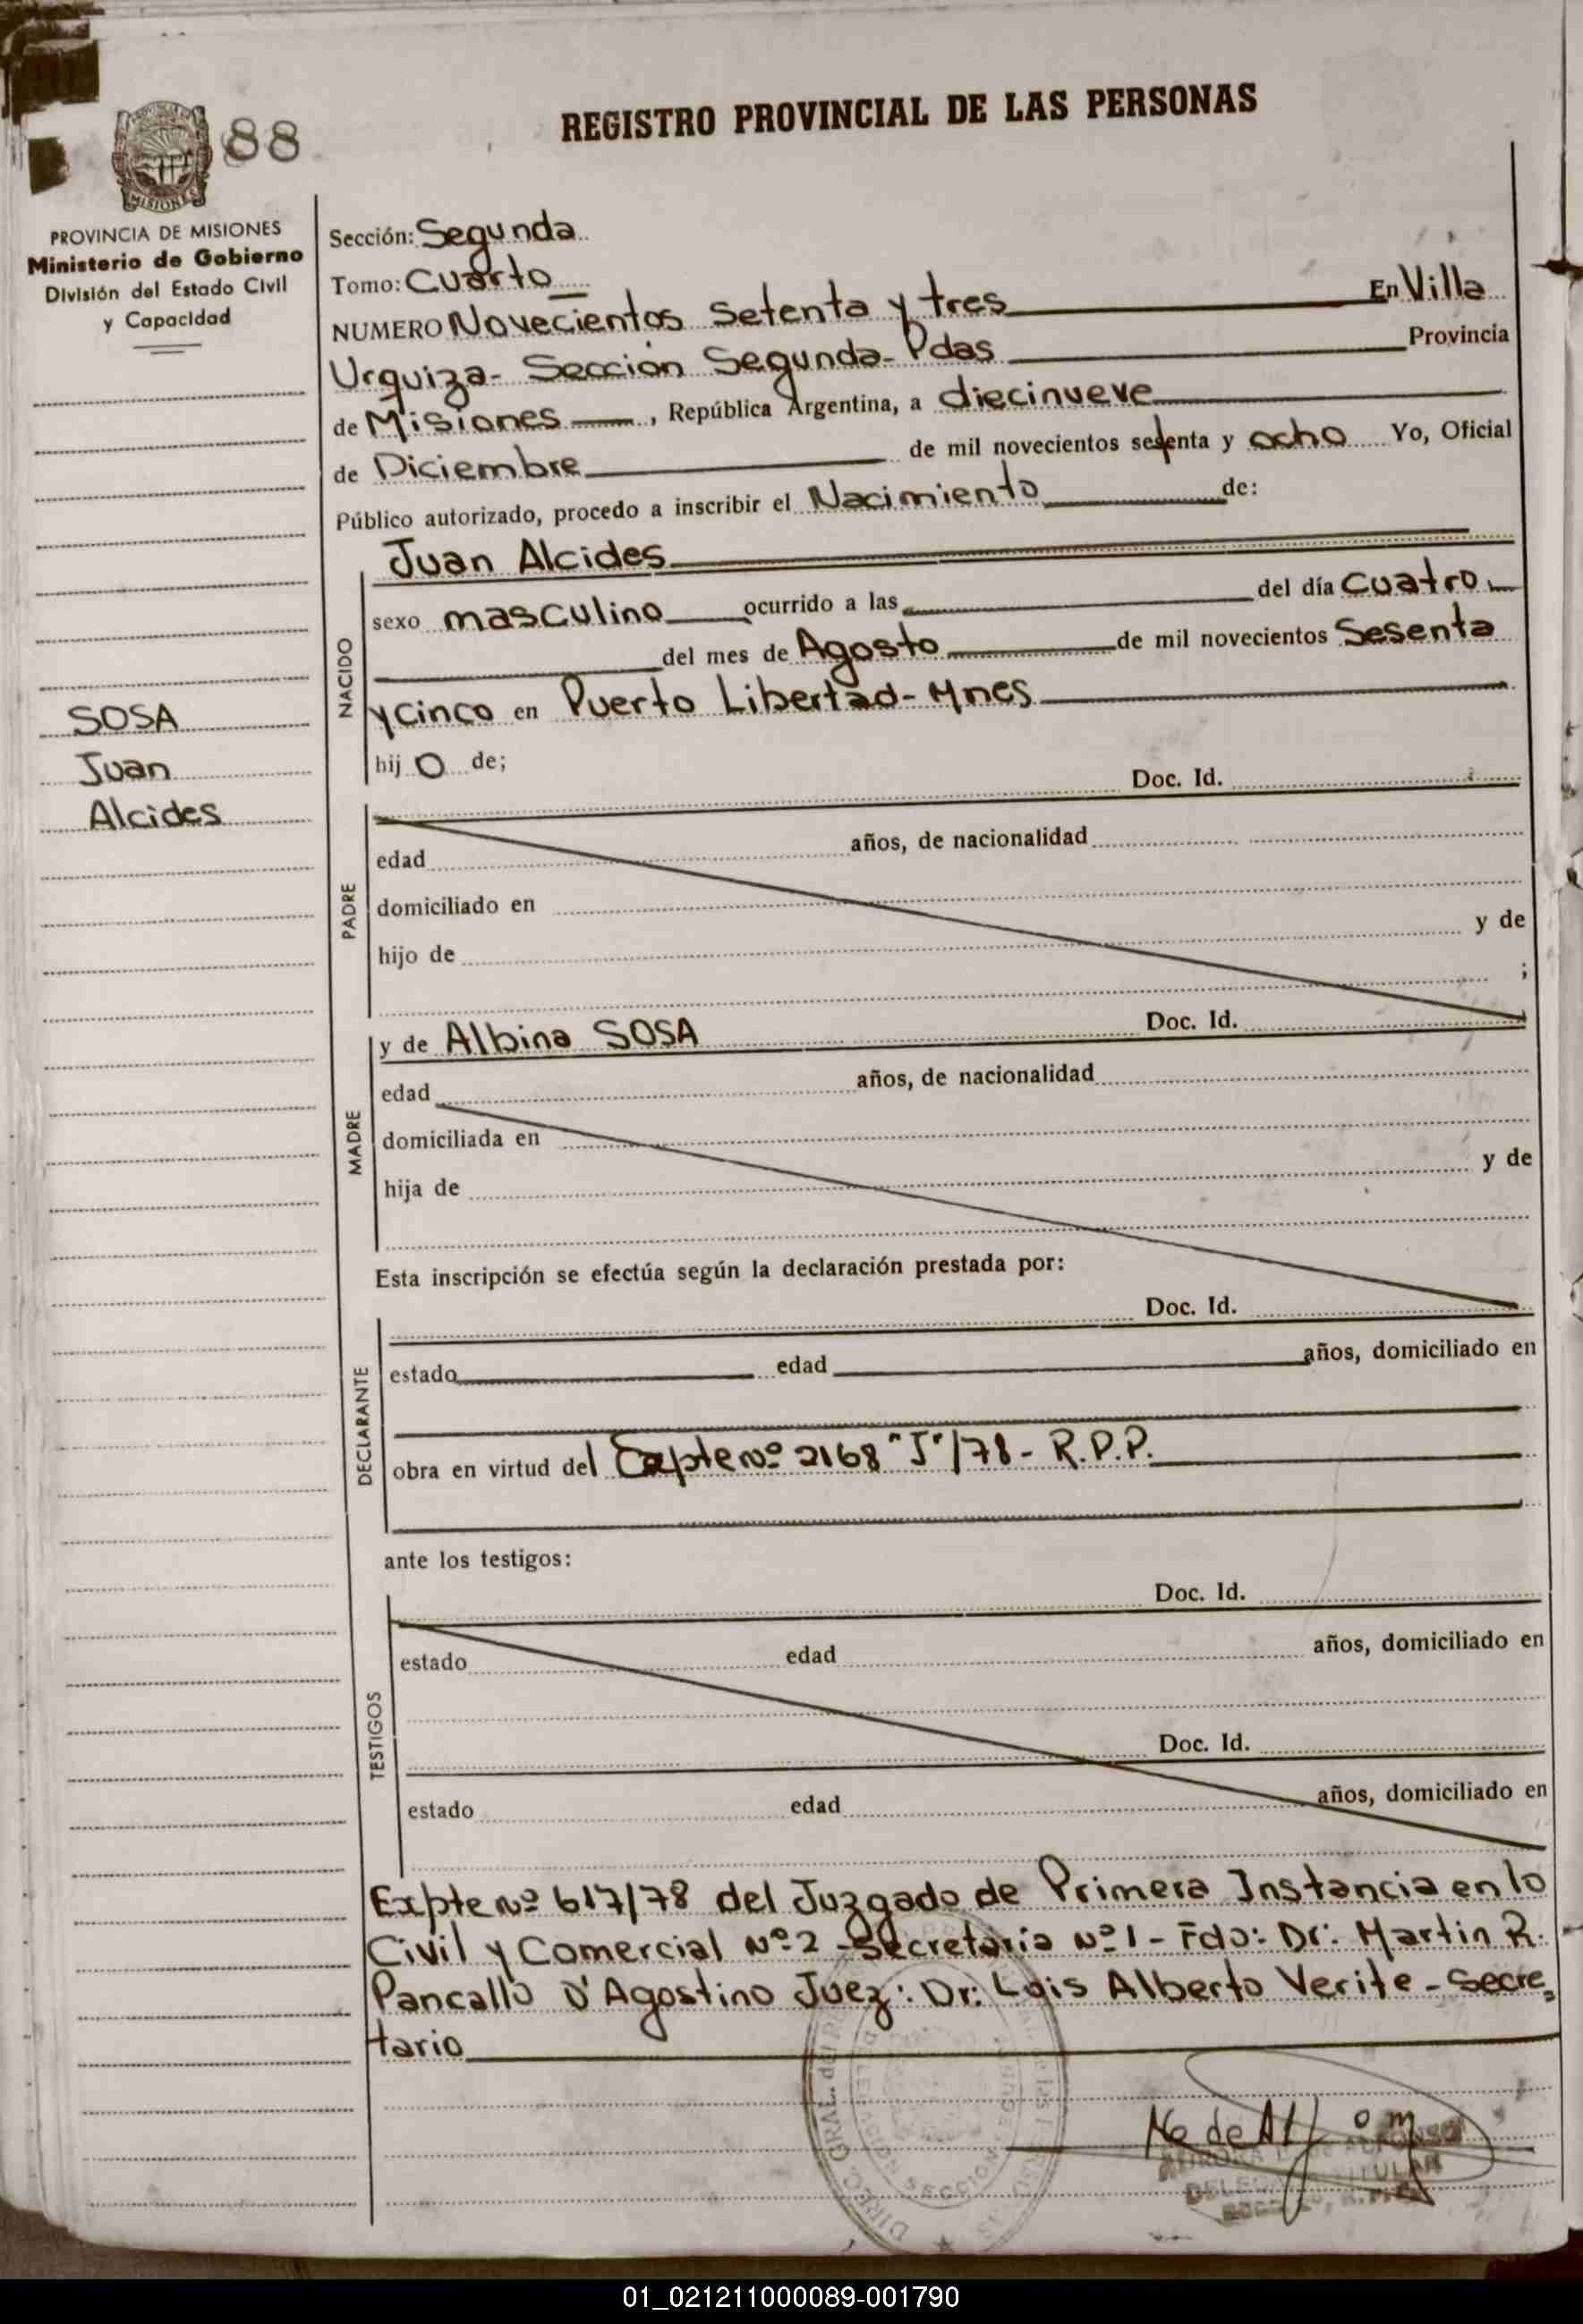 88
REGISTRO PROVINCIAL DE LAS PERSONAS
MISIONES
PROVINCIA DE MISIONES
Ministerio de Gobierno
División del Estado Civil
y Capacidad
SOSA
Juan
Alcides
Sección: Segunda
Tomo: Cuarto
NUMERO Novecientos Setenta y tres En Villa
Urquiza - Sección Segunda - Pdas Provincia
de Misiones, República Argentina, a diecinueve
de Diciembre de mil novecientos setenta y ocho Yo, Oficial
Público autorizado, procedo a inscribir el Nacimiento de:
NACIDO
Juan Alcides
sexo masculino ocurrido a las del día Cuatro
del mes de Agosto de mil novecientos Sesenta
y cinco en Puerto Libertad - Mnes
hij o de;
PADRE
Doc. Id.
edad años, de nacionalidad
domiciliado en
hijo de y de
;
MADRE
y de Albina SOSA Doc. Id.
edad años, de nacionalidad
domiciliada en
hija de y de
Esta inscripción se efectúa según la declaración prestada por:
DECLARANTE
Doc. Id.
estado edad años, domiciliado en
obra en virtud del Expte Nº 2168 "J"/78 - R.P.P.
ante los testigos:
TESTIGOS
Doc. Id.
estado edad años, domiciliado en
Doc. Id.
estado edad años, domiciliado en
Expte Nº 617/78 del Juzgado de Primera Instancia en lo
Civil y Comercial Nº 2 - Secretaría Nº 1 - Fdo: Dr: Martin R.
Pancallo D'Agostino Juez: Dr: Luis Alberto Verite - Secre
tario
DIREC. GRAL. del
SECCION
ALFONSO
TITULAR
01_021211000089-001790